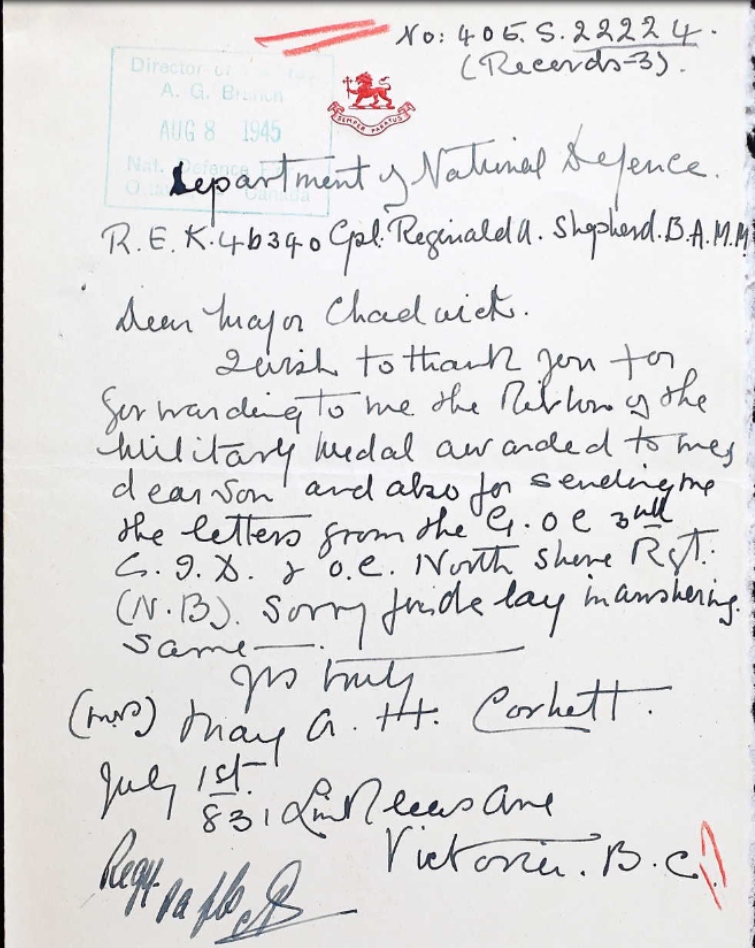 No: 405. S. 22224.
(Records-3).
Director of
A. G. Branch
AUG 8 1945
Nat. Defence
Canada
SEMPER PARATUS
Department of National Defence.
R.E. K.46340 Cpl. Reginald A. Shepherd. B.A. M.M
Dear Major Chadwick.
I wish to thank you for
forwarding to me the Ribbon of the
Military Medal awarded to my
dear Son and also for sending me
the letters from the G.O C 3rd
C.I.D. & O.C. North Shore Rgt.
(N.B). Sorry for delay in answering
same —.
Yrs truly
(Mrs) May A. H. Corkett.
July 1st.
831 Ave
Victoria. B.C.